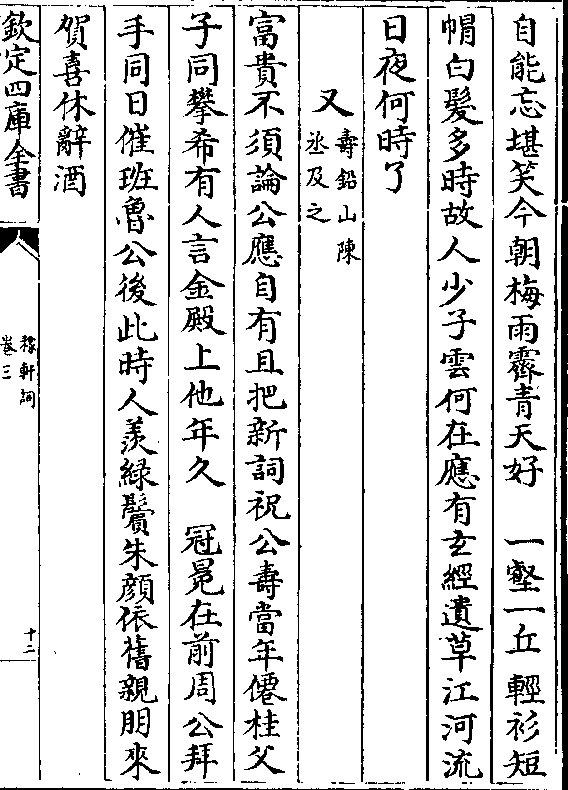 自能忘堪笑今朝梅雨霽青天好　一壑一丘輕衫短
帽白髪多時故人少子雲何在應有玄經遺草江河流
日夜何時了
又壽鉛山陳
丞及之
富貴不須論公應自有且把新詞祝公壽當年僊桂父
子同攀希有人言金殿上他年久　冠冕在前周公拜
手同日催班魯公後此時人羡緑鬢朱顔依舊親朋來
賀喜休辭酒
欽定四庫全書
稼軒詞
卷三
十二